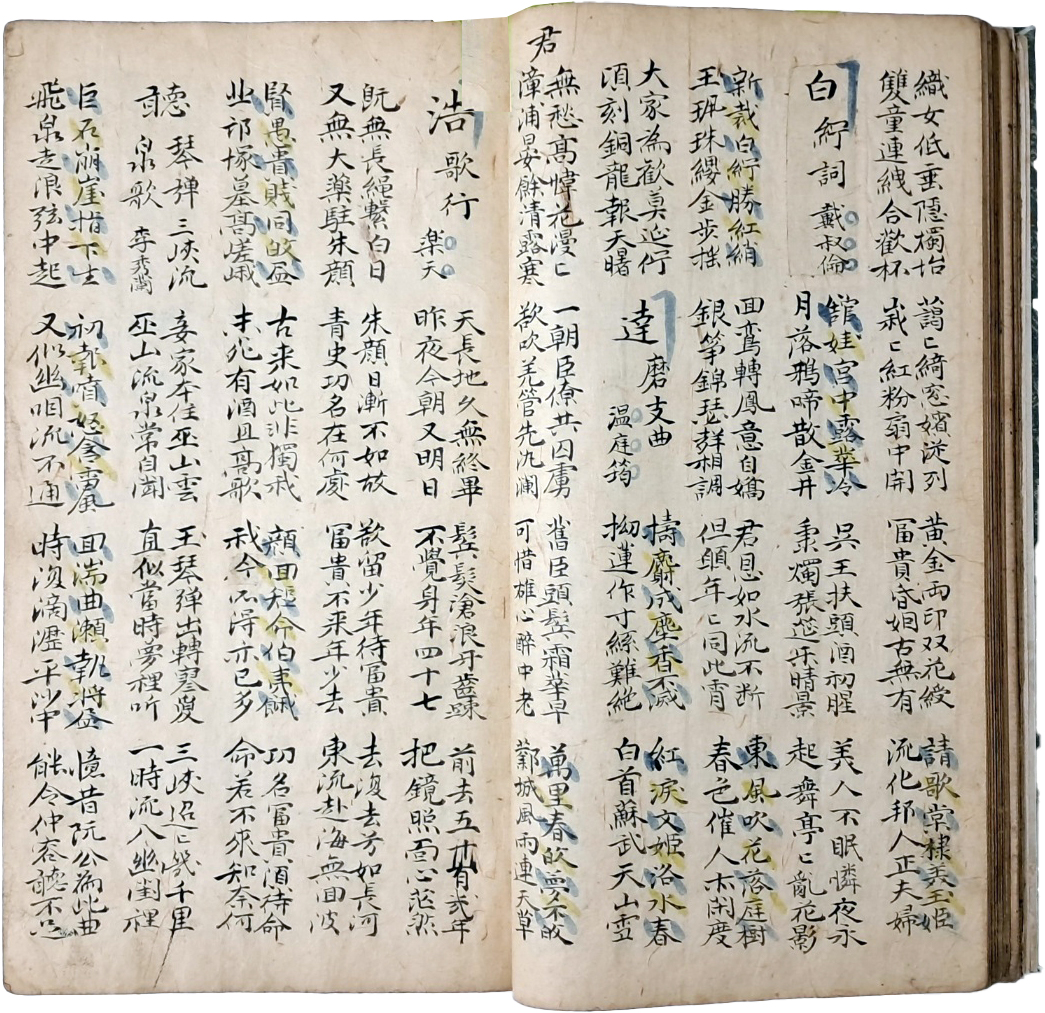 織女低垂隱燭抬
雙童連縷合歡杯
藹〻綺窓嬪從列
娥〻紅粉扇中開
黃金兩印双花綬
冨貴婚姻古無有
請歌棠棣美玉姬
流化邦人正夫婦
白紵詞 戴叔倫
舘娃宮中露華冷
月落鴉啼散金井
吳王扶頭酒初醒
秉燭張筵乐晴景
美人不眠憐夜永
起舞亭〻亂花影
新裁白紵勝紅綃
玉珮珠纓金步搖
回鸞轉鳳意自嬌
銀箏錦瑟聲相調
君恩如水流不断
但願年〻同此宵
東風吹花落庭樹
春色催人等閑度
大家為歡莫延佇
須刻銅龍報天曙
達磨支曲 温庭筠
擣麝成塵香不滅
拗蓮作寸絲難絕
紅淚文姬洛水春
白首蘇武天山雪
君
無愁高幃花漫〻
漳浦晏餘清露寒
一朝臣僚共囚虜
欲吹羌管先汍瀾
舊臣頭鬓霜華早
可惜雄心醉中老
萬里春皈夢不皈
鄴城風雨連天草
浩歌行 楽天
天長地久無終畢
昨夜今朝又明日
鬓髮滄浪牙齒踈
不覺身年四十七
前去五十有幾年
把鏡照面心茫然
既無長繩繫白日
又無大藥駐朱顏
朱顏日漸不如故
青史功名在何處
欲留少年待冨貴
冨貴不来年少去
去復去兮如長河
東流赴海無回波
賢愚貴賤同皈盡
北邙塚墓髙嵯峨
古来如此非獨我
未死有酒且髙歌
顏回短命伯夷餓
我今所得亦已多
功名冨貴須待命
命若不來知奈何
聽琴彈三峽流
泉歌 李秀蘭
妾家本住巫山雲
巫山流泉常自聞
玉琴弹出轉寥敻
直似當時夢裡听
三峽迢〻幾千里
一時流入幽閨裡
巨石崩崖指下生
飛泉走浪弦中起
初報憤怒含雷風
又似幽咽流不通
回湍曲瀨執將盡
時復滴瀝平沙中
憶昔阮公為此曲
能令仲容聽不足